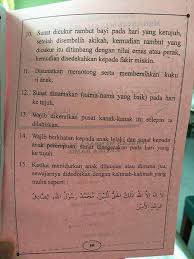 10. Sunat dicukur rambut bayi pada hari yang ketujuh,
setelah disembelih akikah, kemudian rambut yang
dicukur itu ditimbang dengan nilai emas atau perak,
kemudian disedekahkan kepada fakir miskin.
11. Disunatkan memotong serta membersihkan kuku
anak.
12. Sunat dinamakan (nama-nama yang baik) pada hari
ke tujuh.
13. Wajib dikerifkan pusat kanak-kanak itu selepas ia
dilahirkan.
14. Wajib berkhatan kepada anak lelaki dan sunat kepada
anak perempuan, sunat disegerakan pada hari yang
ke tujuh.
15. Ketika menidurkan anak dibuaian atau dimana jua,
sewajarnya didodoikan dengan kalimah-kalimah yang
mulia seperti :
لَا إِلَهَ إِلَّا اللَّهُ الْمَلِكُ الْحَقُّ الْمُبِينُ مُحَمَّدٌ رَسُولُ اللَّهِ الصَّادِقُ
الْوَعْدِ الْأَمِينُ